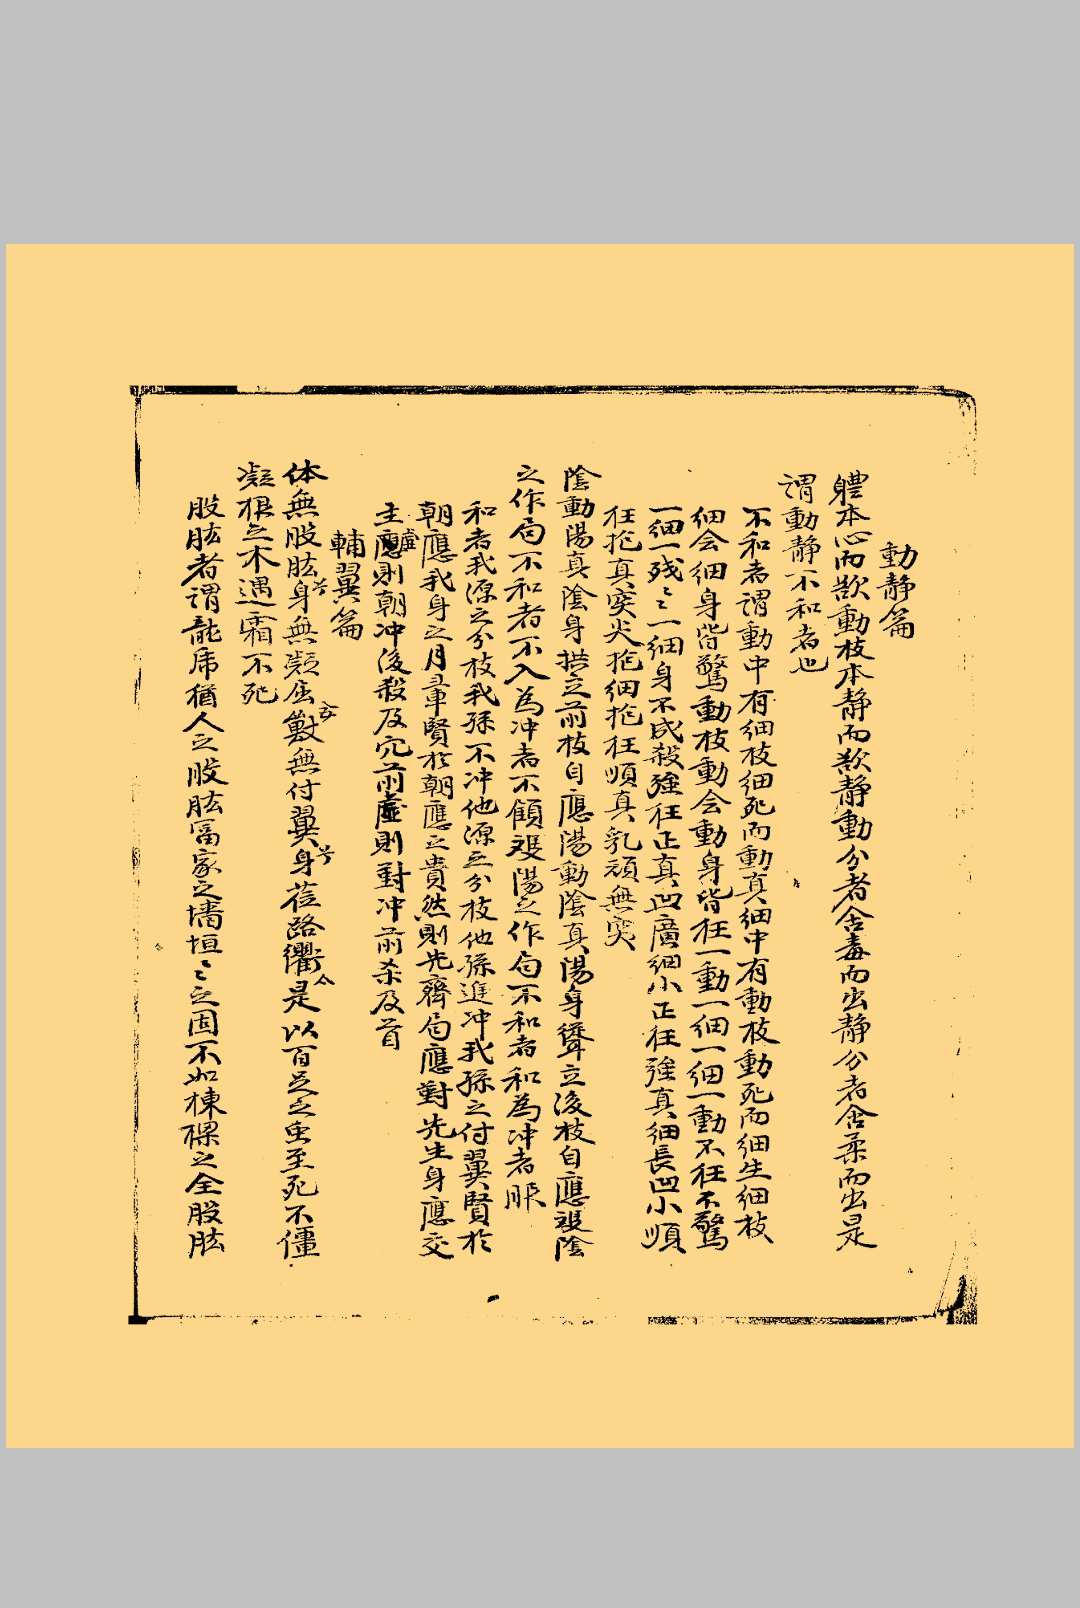 動靜篇
軆本心而歓動枝本静而歓静動分者含毒而出静分者含柔而出是
謂動静不和者也
不和者謂動中有細枝細死而動真細中有動枝動死而細生細枝
細会細身皆驚動枝動会動身皆狂一動一細一細一動不狂不驚
一細一残〻一細身不成殺強狂正真凹廣細小正狂強真細長凹小順
狂拕真突尖拕細拕狂順真乳頑無突
陰動陽真陰身拱立前枝自應陽動陰真陽身聳立後枝自應裉陰
之作局不和者不入為冲者不顧裉陽之作局不和者和為冲者眠
和者我源之分枝我孫不冲他源之分枝他孫進冲我孫之付翼賢於
朝應我身之月羣賢於朝應之貴然則先齊局應對先生身應交
主應則朝冲後殺及穴前虛則對冲前杀及首
虛
輔翼篇
体無股肱兮身無凝屈數無付翼兮身莅路衢是以百足之虫至死不僵
凝根之木遇霜不死
股肱者謂龍席猶人之股肱冨家之墻垣〻之固不如棟樑之全股肱